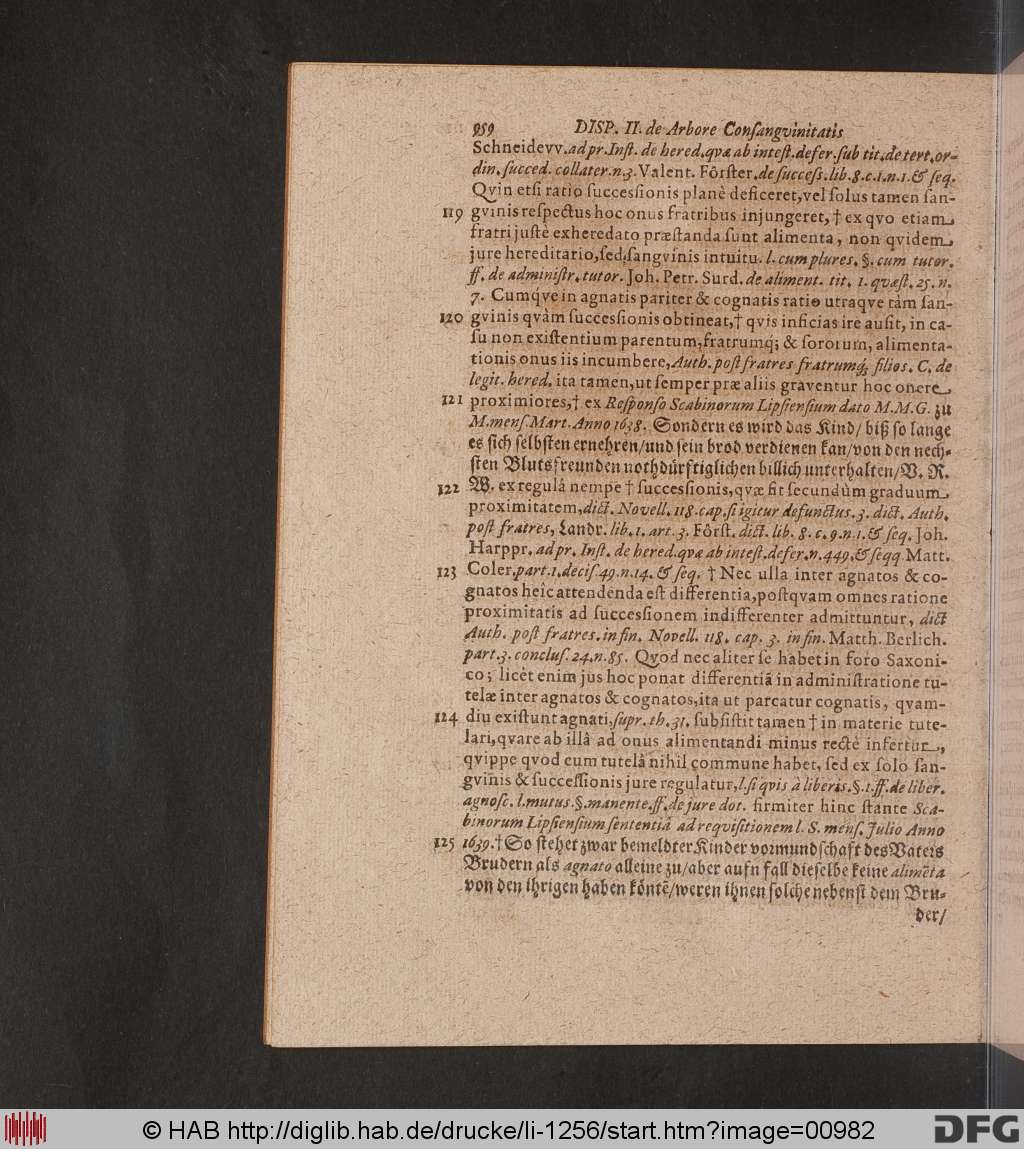 959 DISP. II. de Arbore Conſangvinitatis
Schneidevv. ad pr. Inſt. de hered. qvæ ab inteſt. defer. ſub tit. de tert. or-
din. ſucced. collater. n. 3. Valent. Fôrſter. de ſucceſs. lib. 8. c. 1. n. 1. & ſeq.
Qvin etſi ratio ſucceſſionis planè deficeret, vel ſolus tamen ſan-
119 gvinis reſpectus hoc onus fratribus injungeret, † ex qvo etiam
fratri juſtè exheredato præſtanda ſunt alimenta, non qvidem
jure hereditario, ſed ſangvinis intuitu. l. cum plures. §. cum tutor.
ff. de adminiſtr. tutor. Joh. Petr. Surd. de aliment. tit. 1. qvæſt. 25. n.
7. Cumq́ve in agnatis pariter & cognatis ratio utraqve tàm ſan-
120 gvinis qvàm ſucceſſionis obtineat, † qvis inficias ire auſit, in ca-
ſu non exiſtentium parentum, fratrumq́; & ſororum, alimenta-
tionis onus iis incumbere, Auth. poſt fratres fratrumq́; filios. C. de
legit. hered. ita tamen, ut ſemper præ aliis graventur hoc onere
121 proximiores, † ex Reſponſo Scabinorum Lipſienſium dato M. M. G. zu
M. menſ. Mart. Anno 1638. Sondern es wird das Kind/ biß ſo lange
es ſich ſelbſten ernehren/ und ſein brod verdienen kan/ von den nech-
ſten Blutsfreunden nothdürftiglichen billich unterhalten/ V. R.
122 W. ex regulâ nempe † ſucceſſionis, qvæ fit ſecundùm graduum
proximitatem, dict. Novell. 118. cap. ſi igitur defunctus. 3. dict. Auth.
poſt fratres, Landr. lib. 1. art. 3. Fôrſt. dict. lib. 8. c. 9. n. 1. & ſeq. Joh.
Harppr. ad pr. Inſt. de hered. qvæ ab inteſt. defer. n. 449. & ſeqq. Matt.
123 Coler. part. 1. deciſ. 49. n. 14. & ſeq. † Nec ulla inter agnatos & co-
gnatos heîc attendenda eſt differentia, poſtqvam omnes ratione
proximitatis ad ſucceſſionem indifferenter admittuntur, dict
Auth. poſt fratres. in fin. Novell. 118. cap. 3. in fin. Matth. Berlich.
part. 3. concluſ. 24. n. 85. Qvod nec aliter ſe habet in foro Saxoni-
co; licèt enim jus hoc ponat differentiã in adminiſtratione tu-
telæ inter agnatos & cognatos, ita ut parcatur cognatis, qvam-
124 diu exiſtunt agnati, ſupr. th. 31. ſubſiſtit tamen † in materie tute-
lari, qvare ab illâ ad onus alimentandi minus rectè infertur,
qvippe qvod cum tutelâ nihil commune habet, ſed ex ſolo ſan-
gvinis & ſucceſſionis jure regulatur, l. ſi qvis à liberis. §. 1. ff. de liber.
agnoſc. l. mutus. §. manente. ff. de jure dot. firmiter hinc ſtante Sca-
binorum Lipſienſium ſententiâ ad reqviſitionem l. S. menſ. Julio Anno
125 1639. † So ſtehet zwar bemeldter Kinder vormundſchaft des Vaters
Brudern als agnato alleine zu/ aber aufn fall dieſelbe keine alimẽta
von den ihrigen haben kôntẽ/ weren ihnen ſolche nebenſt dem Bru-
der/
© HAB http://diglib.hab.de/drucke/li-1256/start.htm?image=00982
DFG